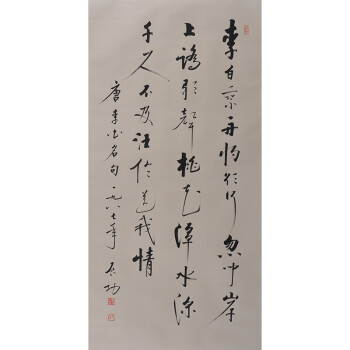 李白乘舟将欲行忽闻岸
上踏歌聲桃花潭水深
千尺不及汪伦送我情
唐李白名句一九八七年 启功